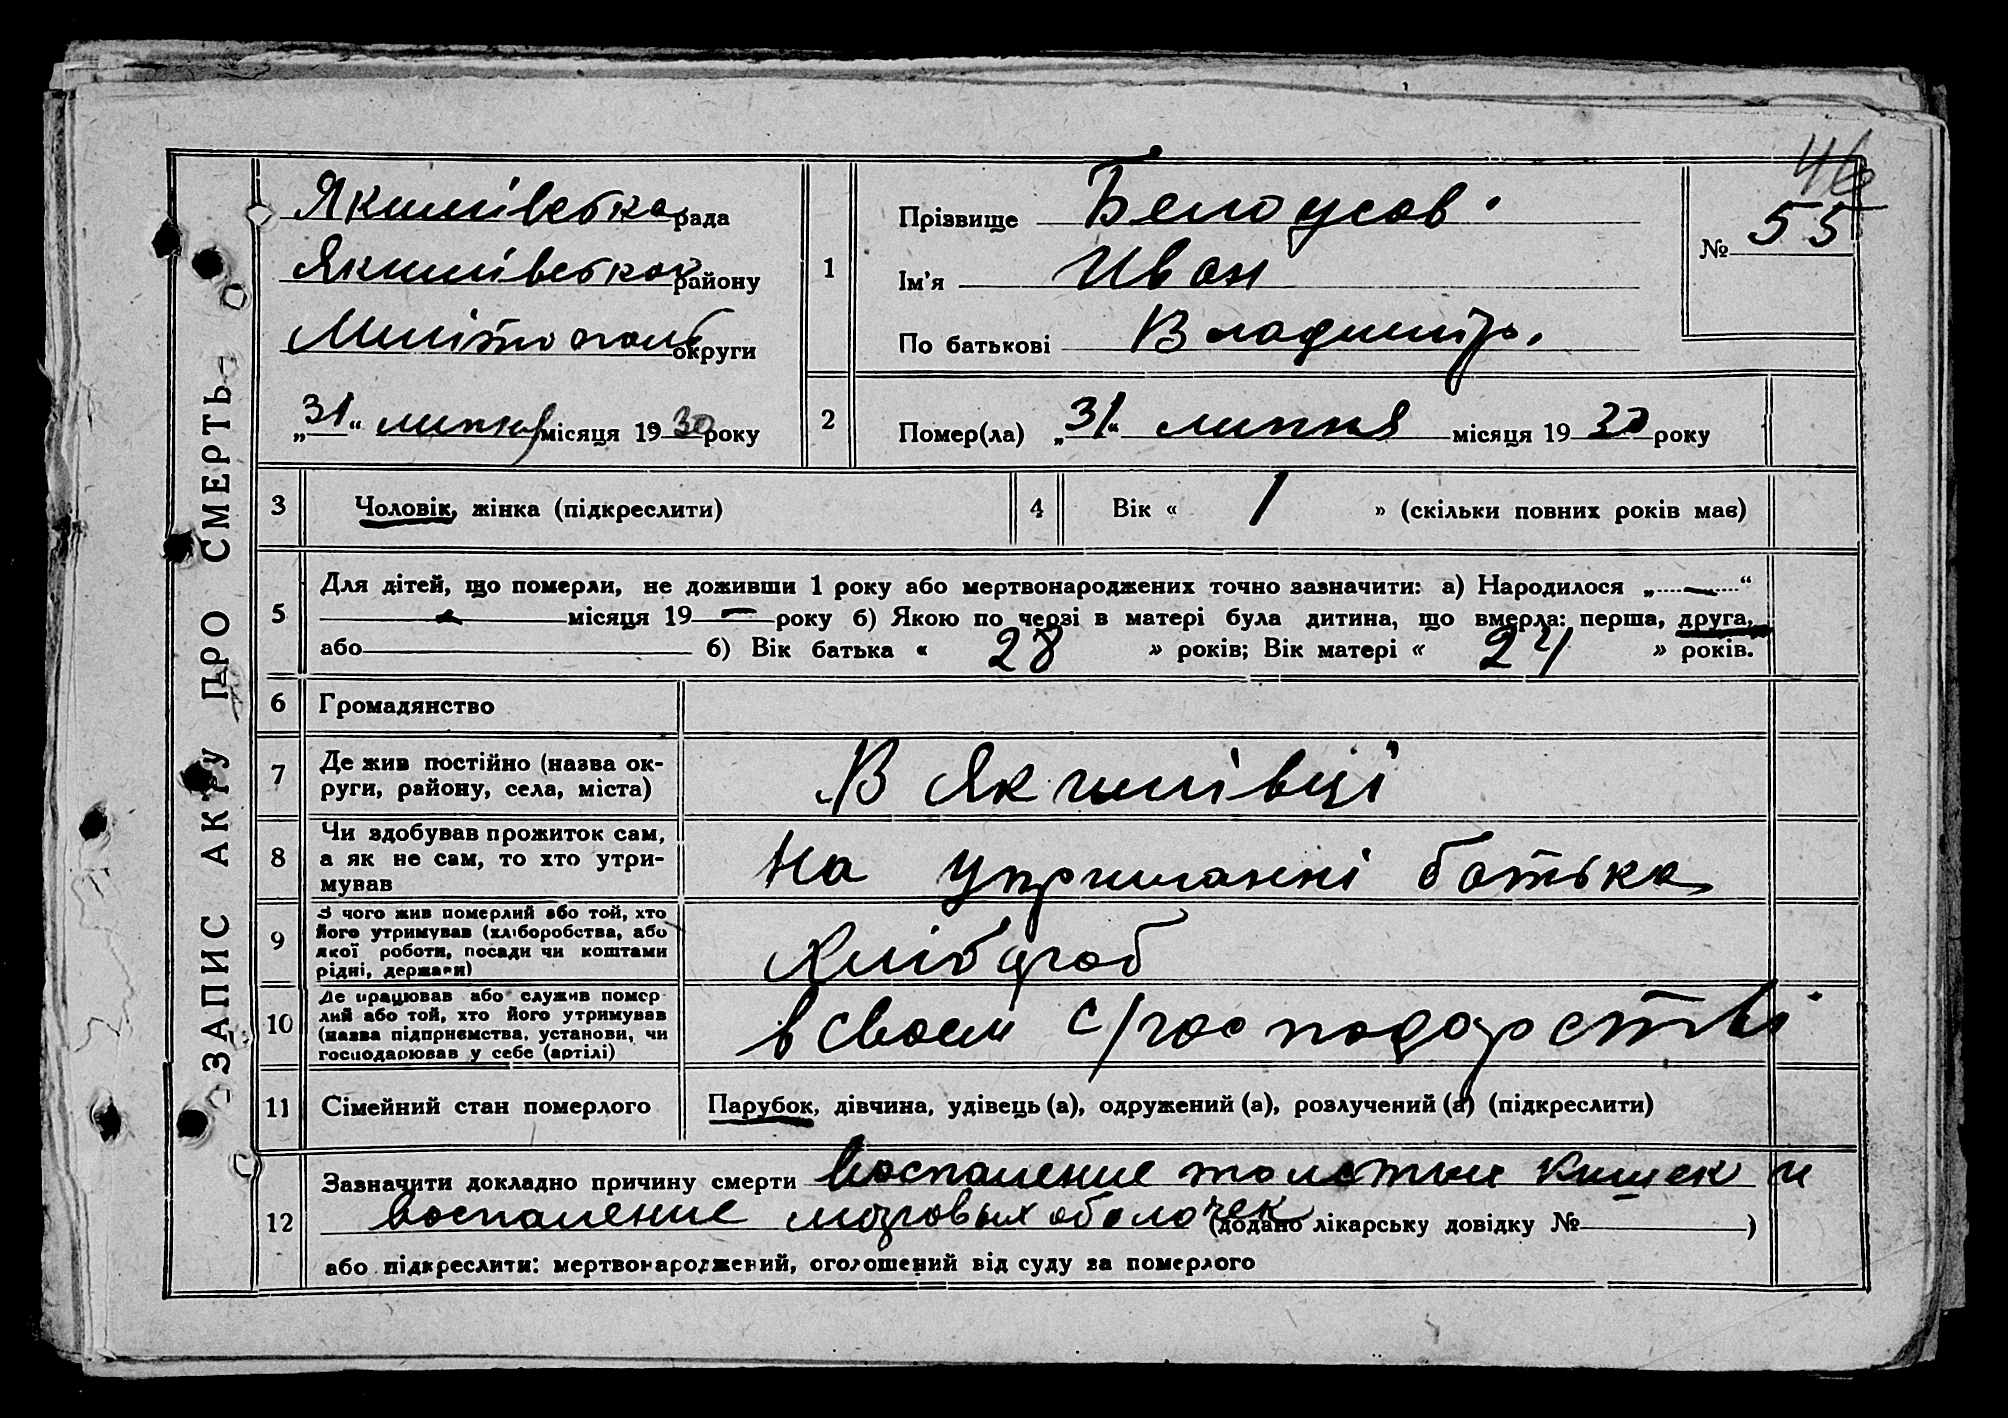 46
ЗАПИС АКТУ ПРО СМЕРТЬ
Якимівська рада
Якимівськ району
Меліто поль округи
„31“ липня місяця 1930 року
1
Прізвище Белоусов.
Ім'я Иван
По батькові Владимір.
№ 55
2
Помер(ла) „31“ липня місяця 1930 року
3 Чоловік, жінка (підкреслити)
4 Вік « 1 » (скільки повних років має)
5
Для дітей, що померли, не доживши 1 року або мертвонароджених точно зазначити: а) Народилося „—“
— місяця 19 — року б) Якою по черзі в матері була дитина, що вмерла: перша, друга,
або 6) Вік батька « 28 » років; Вік матері « 24 » років.
6 Громадянство
7
Де жив постійно (назва ок-
руги, району, села, міста)
В Якимівці
8
Чи здобував прожиток сам,
а як не сам, то хто утри-
мував
На утриманні батька
9
З чого жив померлий або той, хто
його утримував (хліборобства, або
якої роботи, посади чи коштами
рідні, держави)
Хлібороб
10
Де працював або служив помер
лий або той, хто його утримував
(назва підприємства, установи, чи
господарював у себе (артілі)
в своем с/господарстві
11 Сімейний стан померлого
Парубок, дівчина, удівець (а), одружений (а), розлучений (а) (підкреслити)
12
Зазначити докладно причину смерти воспаление толстых кишек и
воспаление мозговых оболочек (додано лікарську довідку № )
або підкреслити: мертвонароджений, оголошений від суду за померлого